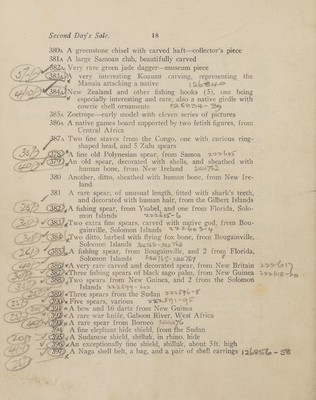 Second Day's Sale. 18
380A A greenstone chisel with carved haft—collector's piece
381A A large Samoan club, beautifully carved
382A Very rare green jade dagger—museum piece
383A A very interesting Kouuan carving, representing the
Manaia attacking a native 126840
384A New Zealand and other fishing hooks (5), one being
especially interesting and rare, also a native girdle with
cowrie shell ornaments
385A Zoetrope—early model with eleven series of pictures
386A A native games board supported by two fetish figures, from
Central Africa
387A Two fine staves from the Congo, one with curious ring-
shaped head, and 5 Zulu spears
378 A fine old Polynesian spear, from Samoa
379 An old spear, decorated with shells, and sheathed with
human bone, from New Ireland
380 Another, ditto, sheathed with human bone, from New Ire-
land
381 A rare spear, of unusual length, fitted with shark's teeth,
and decorated with human hair, from the Gilbert Islands
382 A fishing spear, from Ysabel, and one from Florida, Solo-
mon Islands
383 Two extra fine spears, carved with native god, from Bou-
gainville, Solomon Islands
384 Two ditto, barbed with flying fox bone, from Bougainville,
Solomon Islands
385 A fishing spear, from Bougainville, and 2 from Florida,
Solomon Islands
386 A very rare carved and decorated spear, from New Britain
387 Three fishing spears of black sago palm, from New Guinea
388 Two spears from New Guinea, and 2 from the Solomon
Islands
389 Three spears from the Sudan
390 Five spears, various
391 A bow and 16 darts from New Guinea
392 A rare war knife, Gaboon River, West Africa
393 A rare spear from Borneo
394 A fine elephant hide shield, from the Sudan
395 A Sudanese shield, shilluk, in rhino. hide
396 An exceptionally fine shield, shilluk, about 3ft. high
397 A Naga shell belt, a bag, and a pair of shell earrings 126856-58